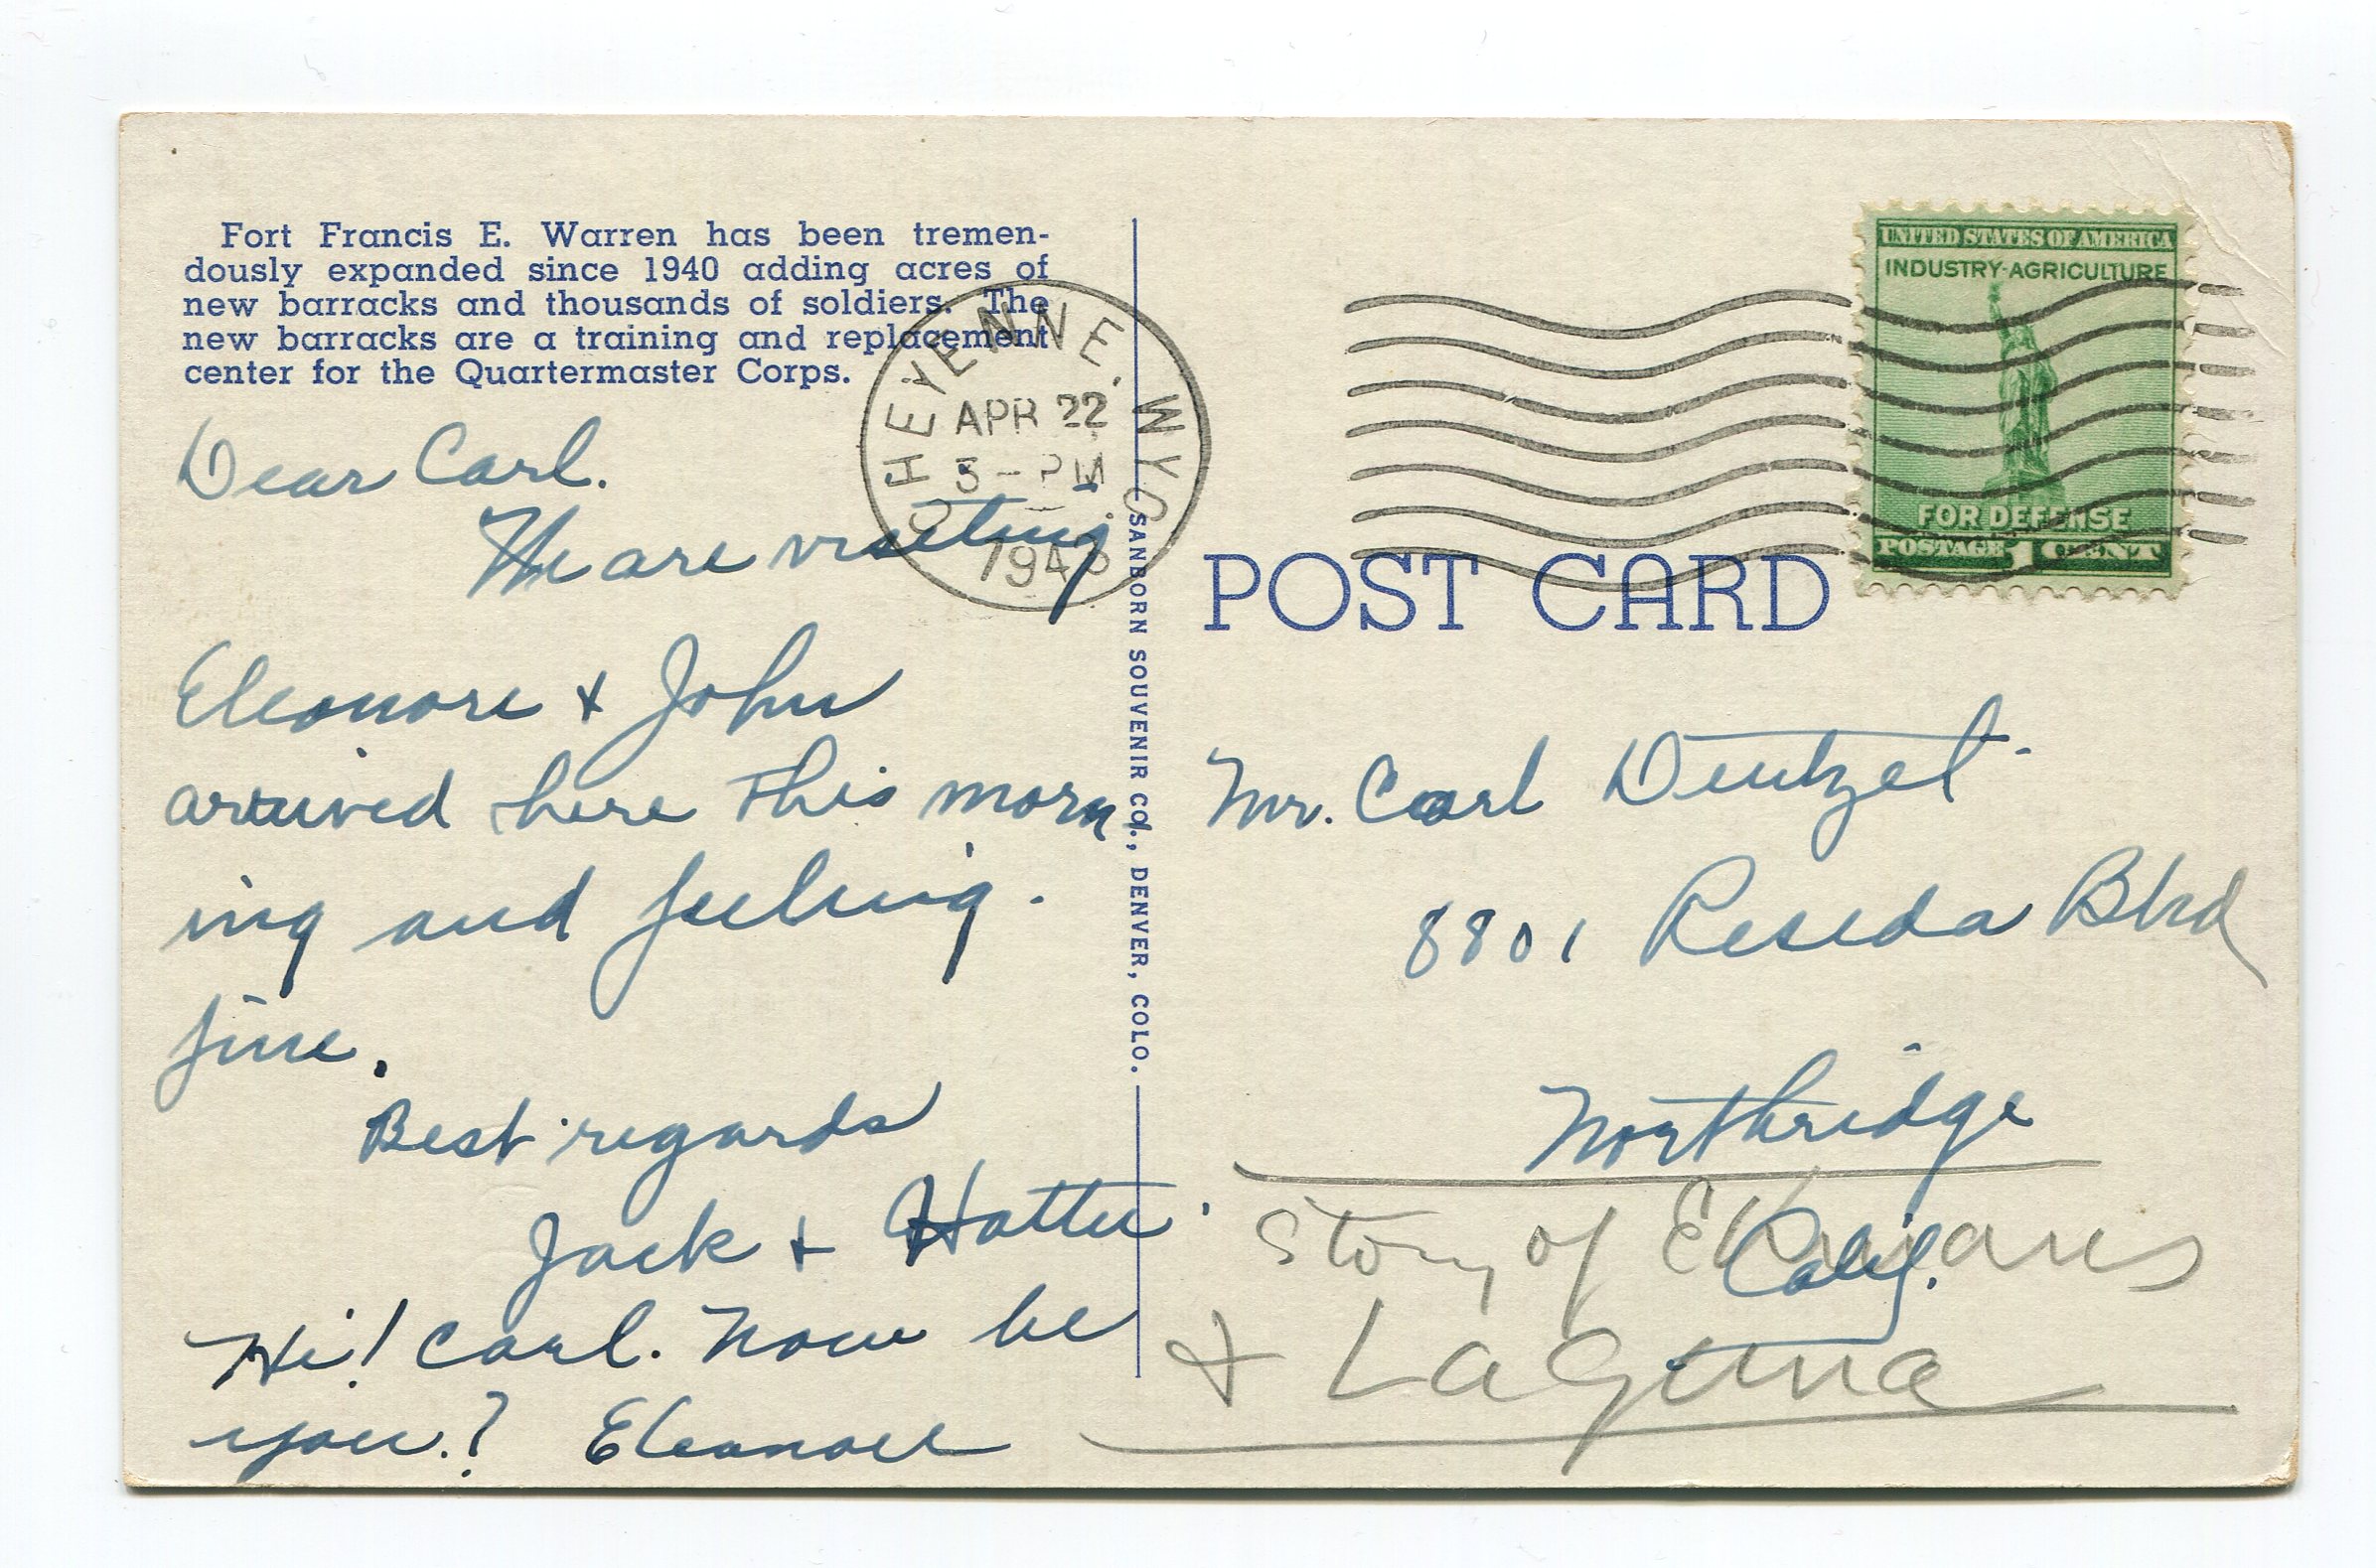 Fort Francis E. Warren has been tremen-
dously expanded since 1940 adding acres of
new barracks and thousands of soldiers. The
new barracks are a training and replacement
center for the Quartermaster Corps.
CHEYENNE, WYO
APR 22
5 - PM
194
UNITED STATES OF AMERICA
INDUSTRY-AGRICULTURE
FOR DEFENSE
POSTAGE 1 CENT
POST CARD
SANBORN SOUVENIR CO., DENVER, COLO.
Dear Carl.
We are visiting
Eleonore + John
arrived here this morn
ing and feeling.
fine.
Best regards
Jack + Hattie
Hi! Carl. How be
you.? Eleonore
Mr. Carl Dentzel
8801 Reseda Blvd
Northridge
Calif.
Story of
+ Laguna